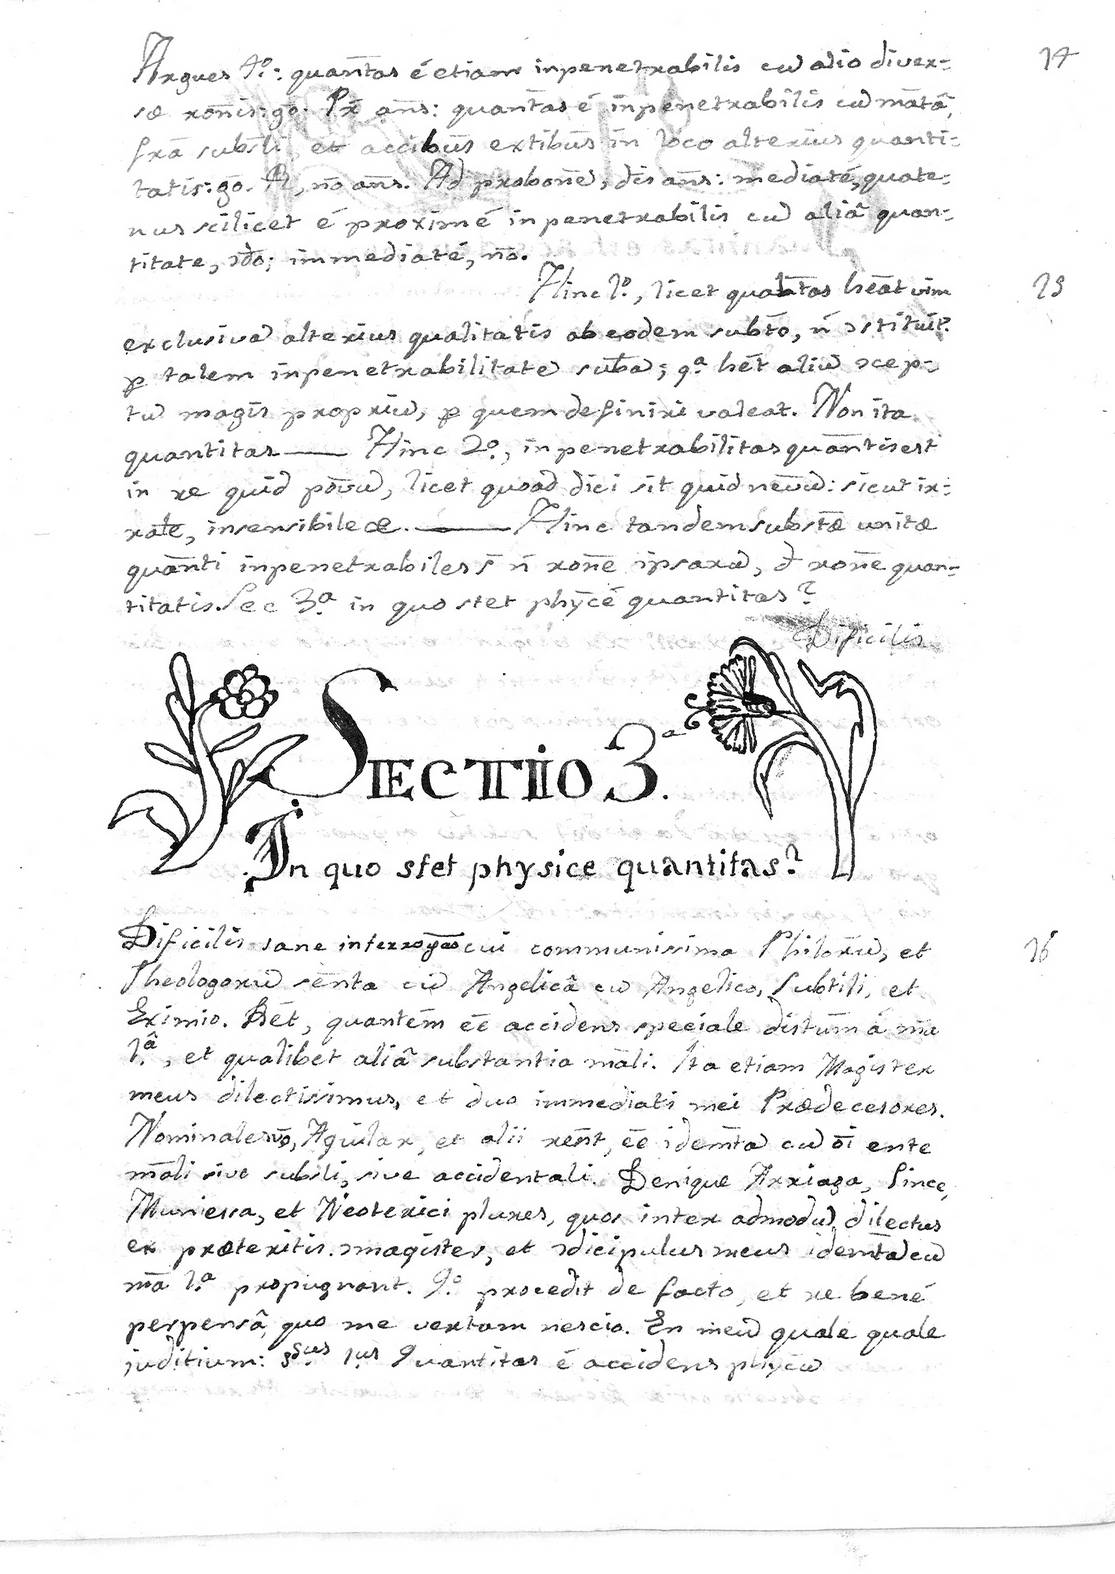 Argues 4.º: quan̄tas ē etiam inpenetrabilis cū alio diver-
sæ rōnis: gō. Pr̄ ans̄: quan̄tas ē inpenetrabilis cū mātâ,
frā subs̄li, et accibūs extibūs in loco alterius quanti-
tatis: gō. R, nō ans̄. Ad probonē, dis̄ ans̄: mediaté, quate-
nus scilicet ē proximé inpenetrabilis cū aliâ quan-
titate, ɔdō; immediaté, nō.
Hinc 1.º, licet quantas heāt vim
exclusivā alterius qualitatis ab eodem subtō, n̄ ɔstituit.r
p talem inpenetrabilitatē subā; q.ª hēt aliū ɔcep-
tū magis propriū, p quem definiri valeat. Non ita
quantitas —— Hinc 2.º, inpenetrabilitas quān̄tis est
in re quid pōvū, licet quoad dici sit quid nēvū: sicut ir-
rāle, insensibile æ. —— Hinc tandem substæ unitæ
quān̄ti inpenetrabiles s̄ n̄ ronē ipsarū, d̄ ronē quan-
titatis. Sec 3.ª in quo stet phycē quantitas?
Dificilis
SECTIO 3.ª
In quo stet physice quantitas?
Dificilis sane interrogāo cui communissima Philorū, et
Theologorū sēnta cū Angelicâ cū Angelico, Subtili, et
Eximio. Rēt, quantēm eē accidens speciale distūm á mā
1.ª, et qualibet aliâ substantia māli. Ita etiam Magister
meus dilectissimus, et duo immediati mei Prædecesores.
Nominales vō, Aguilar, et alii rēnt, eē idemtā cū oī ente
māli sive subs̄li, sive accidentali. Denique Arriaga, Lince,
Muniesa, et Neoterici plures, quos inter admodū dilectus
ex præteritis magister, et ɔdicipulus meus idemtā cū
mā 1.ª propugnant. q.º procedit de facto, et re bené
perpensâ, quo me vertam nescio. En meū quale quale
juditium: sdus 1us Quantitas ē accidens phycū
14
15
16